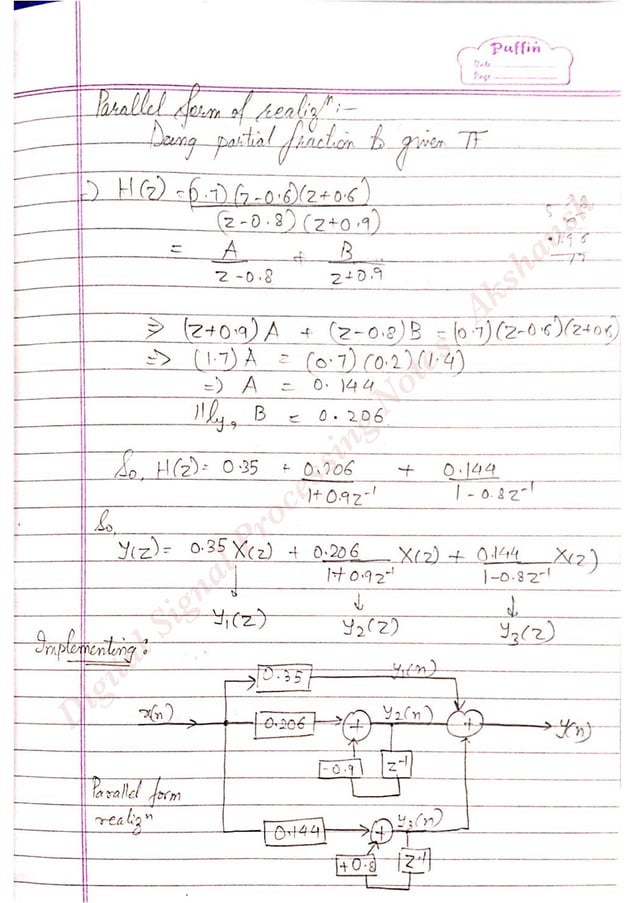 Puffin
Date
Page
Parallel form of realizⁿ:-
Doing partial fraction to given TF
=) H(z) = (0.7)(z-0.6)(z+0.6)
(z-0.8)(z+0.9)
= A + B
z-0.8 z+0.9
=> (z+0.9)A + (z-0.8)B = (0.7)(z-0.6)(z+0.6)
=> (1.7)A = (0.7)(0.2)(1.4)
=) A = 0.144
llly, B = 0.206
So, H(z) = 0.35 + 0.206 + 0.144
1+0.9z⁻¹ 1-0.8z⁻¹
So,
Y(z) = 0.35 X(z) + 0.206 X(z) + 0.144 X(z)
1+0.9z⁻¹ 1-0.8z⁻¹
Y₁(z) Y₂(z) Y₃(z)
Implementing:
0.35 y₁(n)
x(n) 0.206 + y₂(n) + y(n)
-0.9 z⁻¹
Parallel form
realizⁿ
0.144 + y₃(n)
+0.8 z⁻¹
Digital Signal Processing Notes - Akshansh